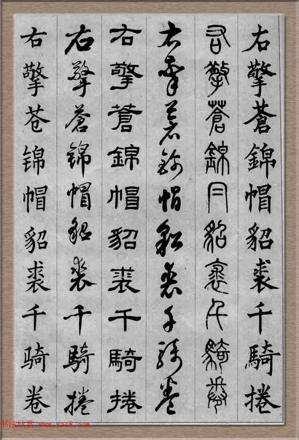 右擎蒼錦帽貂裘千騎捲
右擎蒼錦冃貂裘千騎卷
右擎蒼錦帽貂裘千騎卷
右擎蒼錦帽貂裘千騎捲
右擎蒼錦帽貂裘千騎捲
右擎苍锦帽貂裘千骑卷